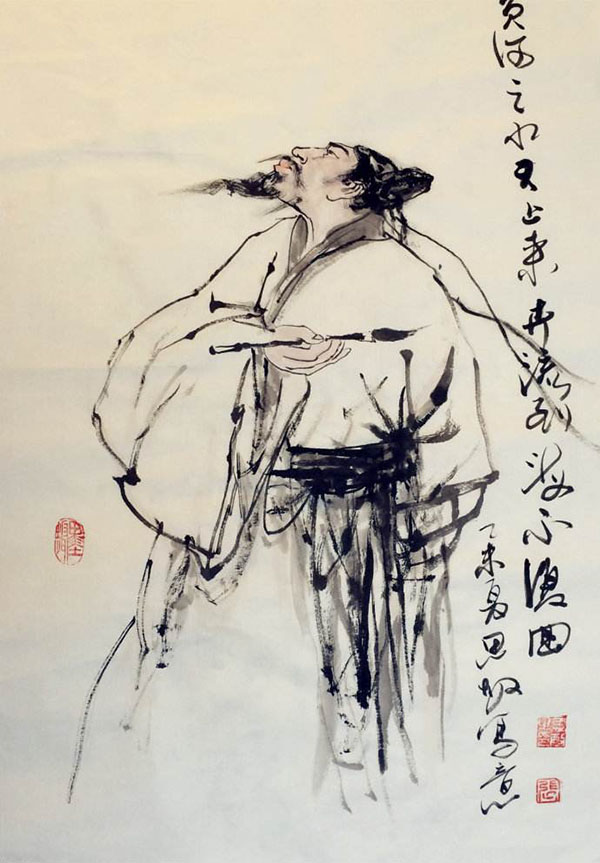 黄河之水天上来奔流到海不復回
乙未夏思写意
張